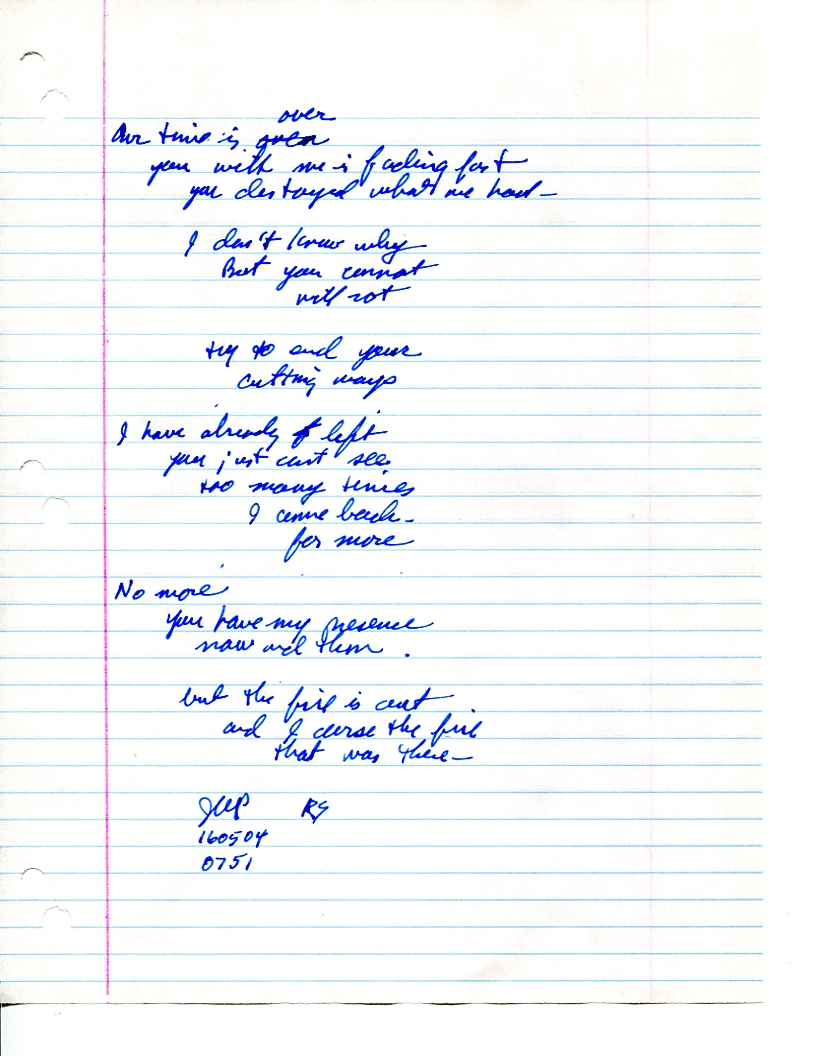 over
Our time is over
you with me is fading fast
you destoyed what we had—
I don't know why
But you cannot
will not
try to end your
cutting ways
I have already left
you just cant see
too many times
I came back-
for more
No more
you have my presence
now and then.
but the fire is out
and I curse the fire
that was there—
JWP RS
160504
0751